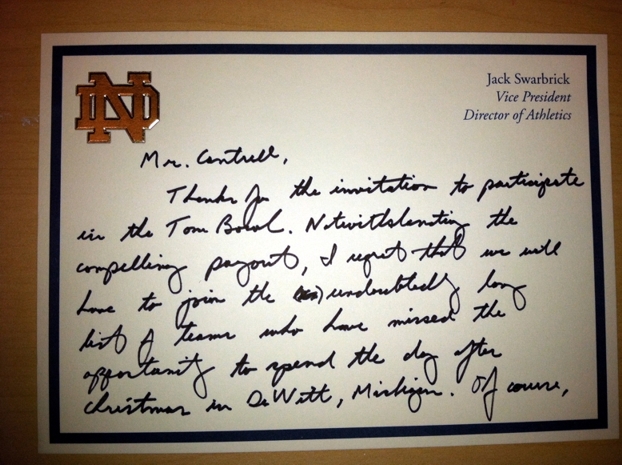 ND
Jack Swarbrick
Vice President
Director of Athletics
Mr. Cantrell,
Thanks for the invitation to participate
in the Tom Bowl. Notwithstanding the
compelling payout, I regret that we will
have to join the undoubtedly long
list of teams who have missed the
opportunity to spend the day after
Christmas in DeWitt, Michigan. Of course,